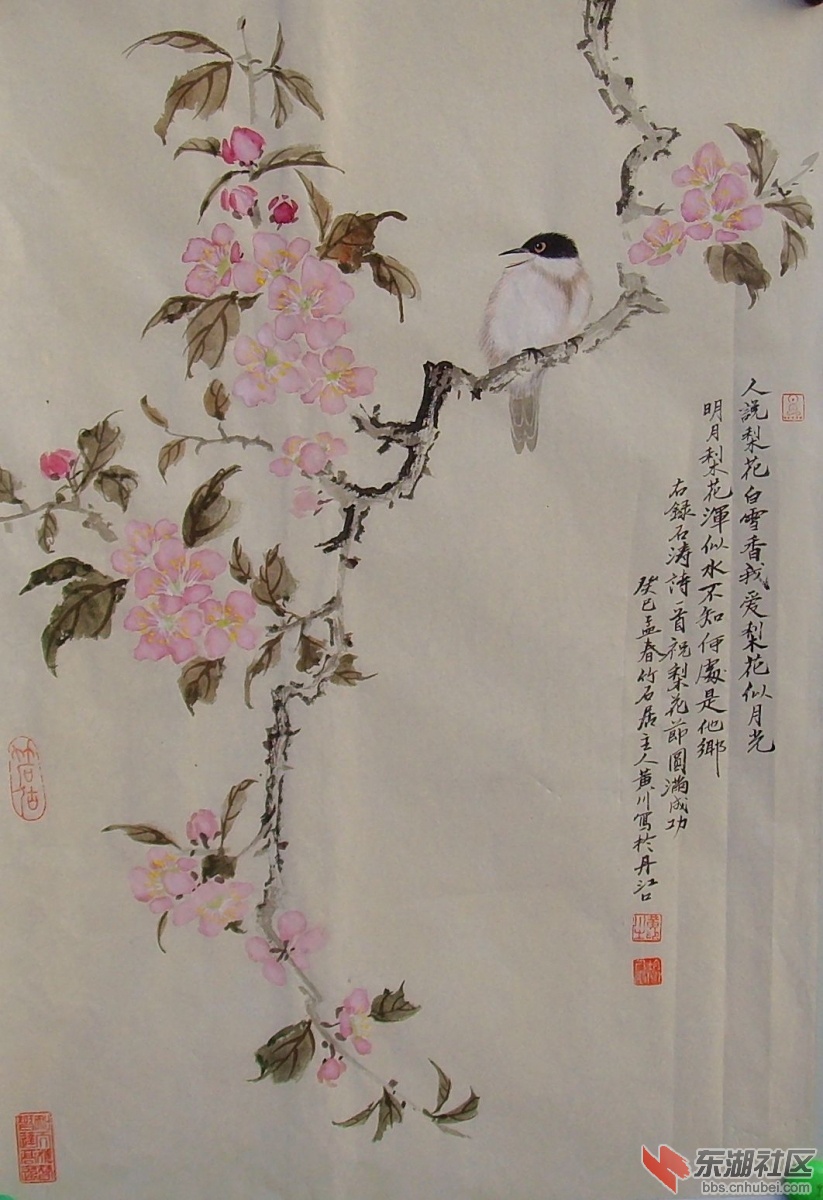 人說梨花白雪香我爱梨花似月光
明月梨花渾似水不知何處是他鄉
右録石涛詩一首祝梨花節圓滿成功
癸巳孟春竹石居主人黄川寫於丹江口
东湖社区
bbs.cnhubei.com